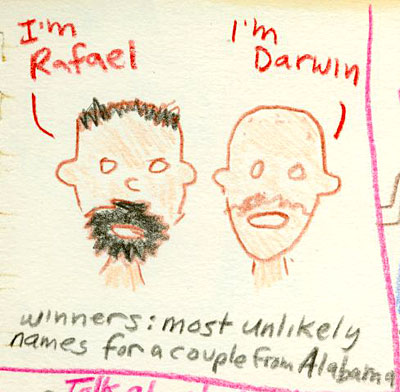 I'm
Rafael
I'm
Darwin
winners: most unlikely
names for a couple from Alabama
Talk